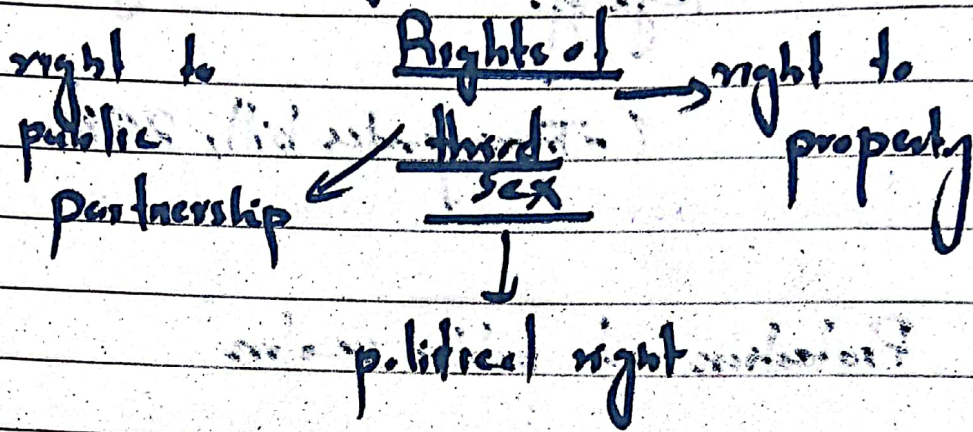 Rights of
third
sex
right to
public
partnership
right to
property
political right